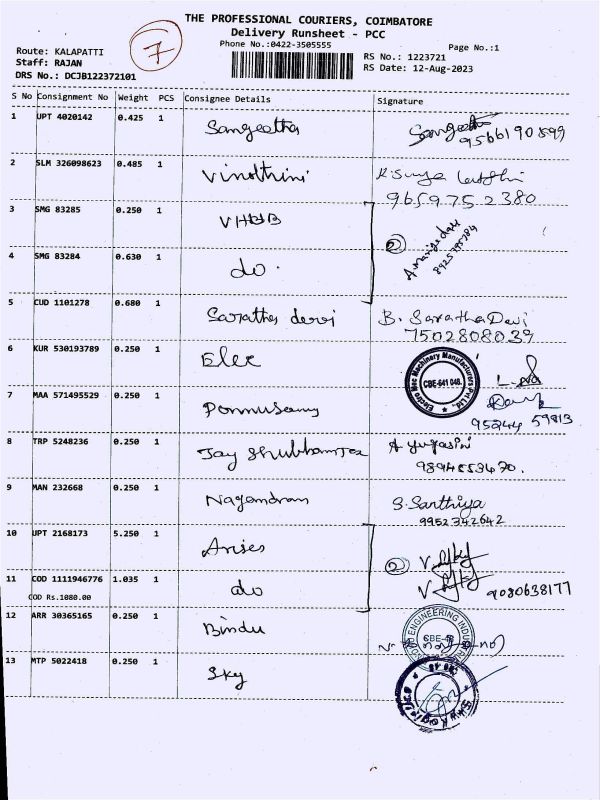 THE PROFESSIONAL COURIERS, COIMBATORE
Delivery Runsheet - PCC
Phone No.:0422-3505555
Page No.:1
Route: KALAPATTI
Staff: RAJAN
DRS No.: DCJB122372101
7
RS No.: 1223721
RS Date: 12-Aug-2023
S No Consignment No Weight PCS Consignee Details Signature
1 UPT 4020142 0.425 1 Sangeetha Sangeetha
9566190899
2 SLM 326098623 0.485 1 Vinothini
9659752380
3 SMG 83285 0.250 1 VHBB
2
8925795784
4 SMG 83284 0.630 1 do.
5 CUD 1101278 0.680 1 Saratha devi B. Saratha Devi
7502808039
6 KUR 530193789 0.250 1 Elec
Electro Mec Machinery Manufacturers Pvt Ltd.
CBE-641 048.
7 MAA 571495529 0.250 1 Ponnusamy
95244 59813
8 TRP 5248236 0.250 1 Jay Shubhamtex A yugasini
9894553470.
9 MAN 232668 0.250 1 Nagendran S. Santhiya
9952342642
10 UPT 2168173 5.250 1 Arises
2
11 COD 1111946776 1.035 1 do
9080638177
COD Rs.1080.00
12 ARR 30365165 0.250 1 Bindu
ENGINEERING
CBE-48
13 MTP 5022418 0.250 1 Sky